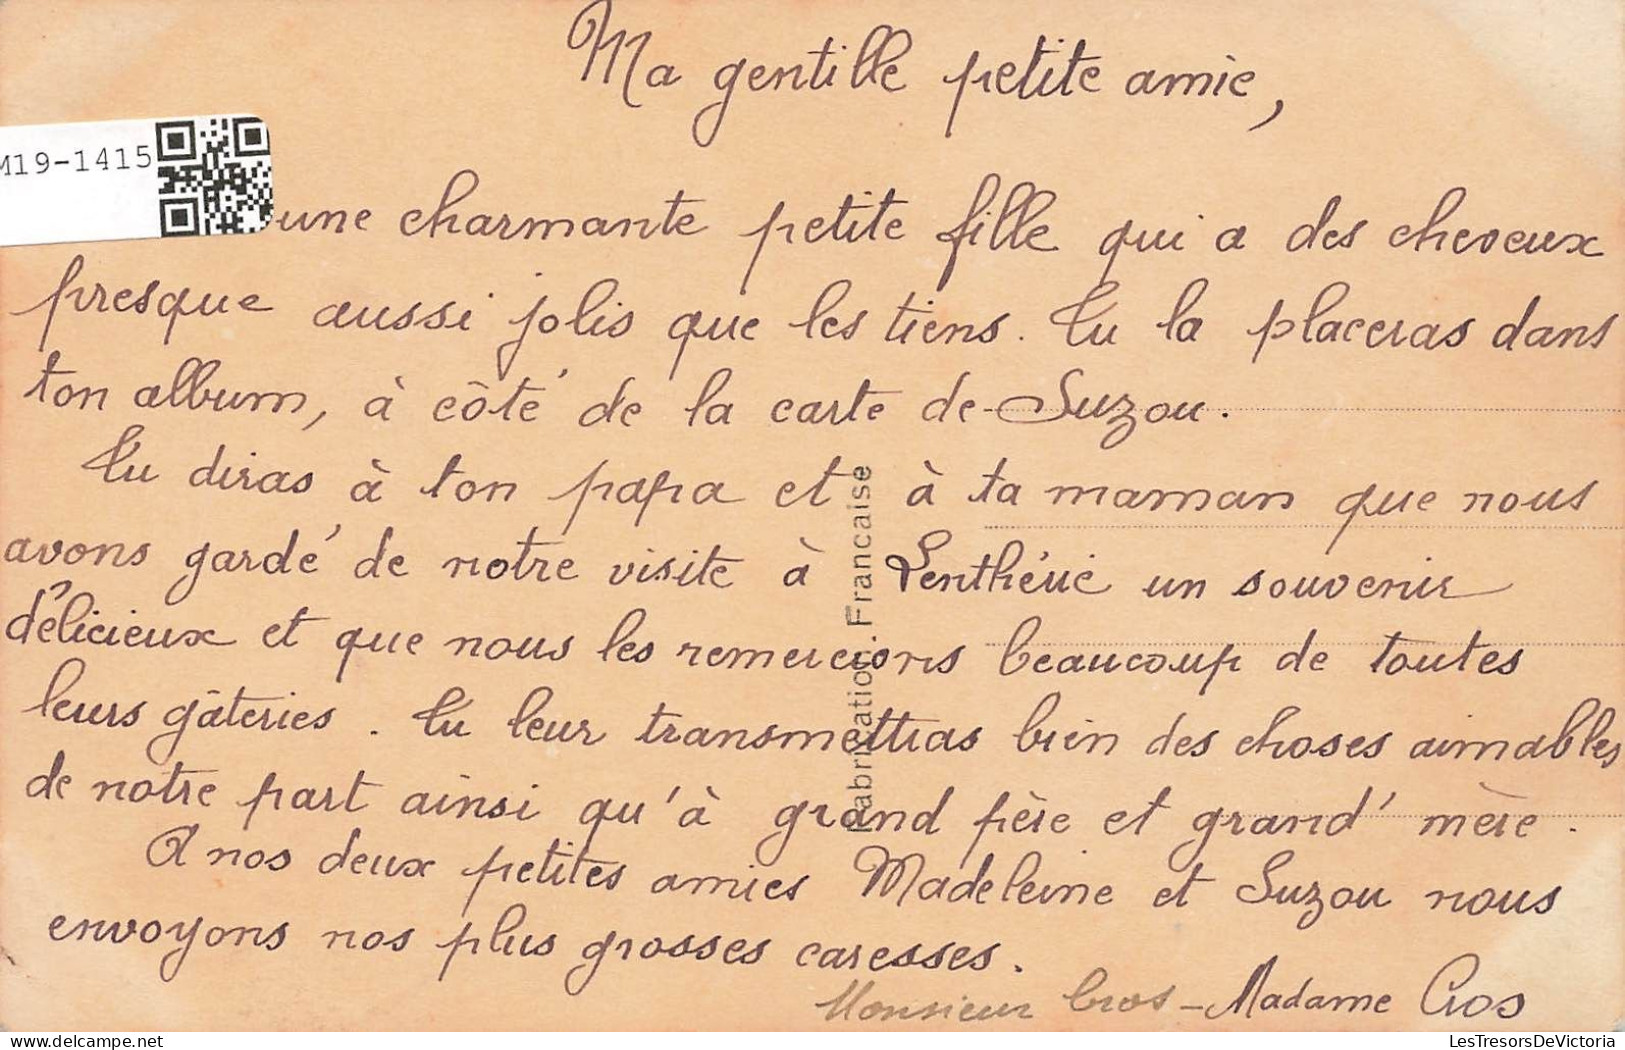 Ma gentille petite amie,
M19-1415
une charmante petite fille qui a des cheveux
presque aussi jolis que les tiens. Tu la placeras dans
ton album, à côté de la carte de Suzou.
Tu diras à ton papa et à ta maman que nous
avons gardé de notre visite à Lenthéric un souvenir
délicieux et que nous les remercions beaucoup de toutes
leurs gâteries. Tu leur transmettras bien des choses aimables
de notre part ainsi qu'à grand père et grand' mère.
A nos deux petites amies Madeleine et Suzou nous
envoyons nos plus grosses caresses.
Monsieur Cros - Madame Cros
Fabrication Francaise
delcampe.net
LesTresorsDeVictoria